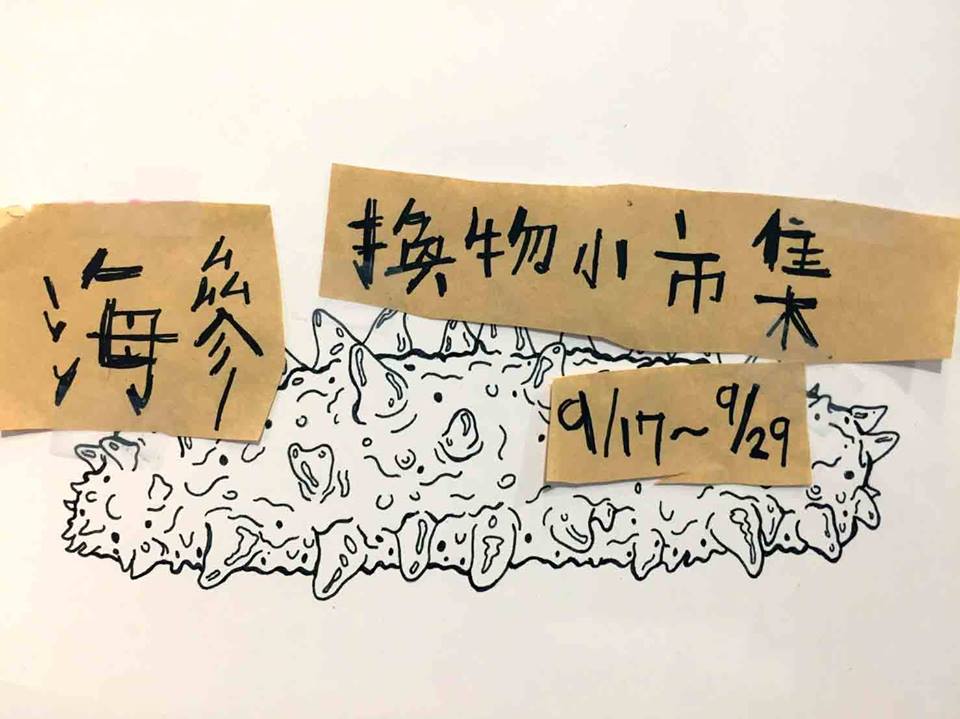 海參
換物小市集
9/17~9/29